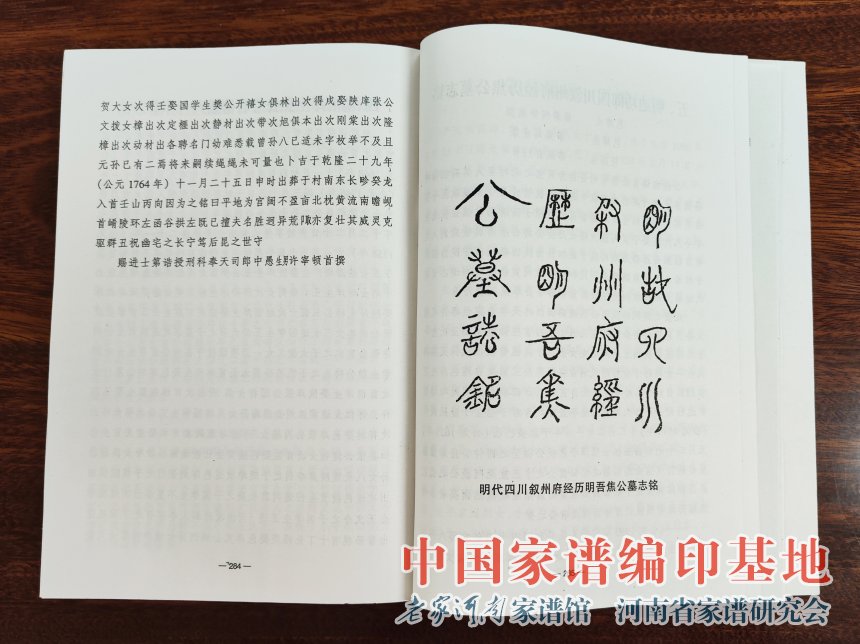 贺大女次得壬娶国学生樊公开禧女俱林出次得成娶陕庠张公
文拨女樟出次定榧出次静材出次带次旭俱本出次刚棠出次隆
樟出次动材出各聘名门幼难悉载曾孙八已适未字枚举不及且
元孙已有二焉将来嗣续绳绳未可量也卜吉于乾隆二十九年
(公元1764年)十一月二十五日申时出葬于南村东长畛癸龙
入首壬山丙向因为之铭曰平地为宫阔不盈亩北枕黄流南瞻岘
首崤陵环左函谷拱左既已擅夫名胜迥异荒陬亦复壮其威灵克
驱群丑祝幽宅之长宁笃后昆之世守
赐进士第诰授刑科奉天司郎中愚生男许宰顿首撰
—284—
明故四川
叙州府经
歷明吾焦
公墓誌銘
明代四川叙州府经历明吾焦公墓志铭
中国家谱编印基地
老家河南家谱馆 河南省家谱研究会